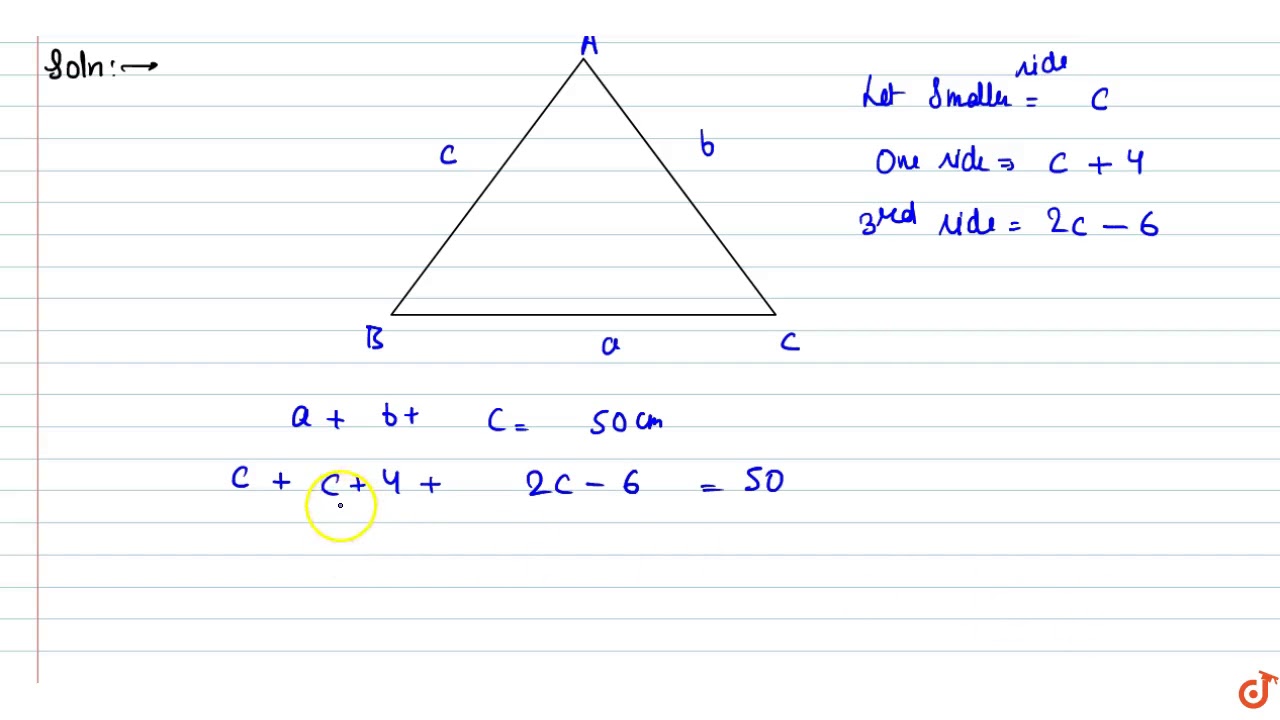 Soln:→
A
c
b
B
a
C
Let Smaller side = C
One side ⇒ C + 4
3rd side = 2C - 6
a + b + C = 50 cm
C + C + 4 + 2C - 6 = 50